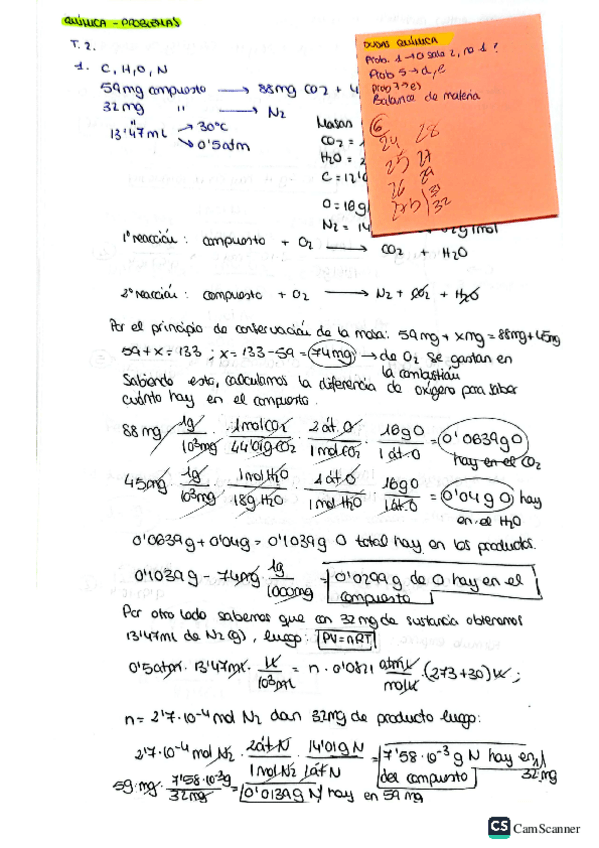 QUÍMICA - PROBLEMAS
T. 2.
1. C, H, O, N
59mg compuesto → 88mg CO2 + 4
32mg " → N2
13'47mL → 30°C
→ 0'5atm
DUDAS QUÍMICA
Prob. 1 → O sale 2, no 1?
Prob 5 → d, e
prob 7 → e)
Balance de materia
6
24 28
25 27
26 29
31
32
Masas
CO2 =
H2O = 2
C = 12'0
O = 16g/
N2 = 14
02g/mol
1ª reacción: compuesto + O2 → CO2 + H2O
2ª reacción: compuesto + O2 → N2 + CO2 + H2O
Por el principio de conservación de la masa: 59mg + xmg = 88mg + 45mg
59 + x = 133 ; x = 133 - 59 = 74mg → de O2 se gastan en
la combustión
Sabiendo esto, calculamos la diferencia de oxígeno para saber
cuánto hay en el compuesto.
88mg · 1g/10³mg · 1molCO2/44'01gCO2 · 2át.O/1molCO2 · 16gO/1át.O = 0'0639gO
hay en el CO2
45mg · 1g/10³mg · 1molH2O/18gH2O · 1át.O/1molH2O · 16gO/1át.O = 0'04gO hay
en el H2O
0'0639g + 0'04g = 0'1039g O total hay en los productos.
0'1039g - 74mg · 1g/1000mg = 0'0299g de O hay en el
compuesto
Por otro lado sabemos que con 32mg de sustancia obtenemos
13'47ml de N2(g), luego: PV=nRT
0'5atm · 13'47mL · 1L/10³mL = n · 0'0821 atm·L/mol·K · (273+30)K ;
n = 2'7·10⁻⁴ mol N2 dan 32mg de producto luego:
2'7·10⁻⁴ mol N2 · 2át N/1mol N2 · 14'01g N/1át N = 7'58·10⁻³g N hay en
del compuesto 32mg
59 mg · 7'58·10⁻³g/32mg = 0'0139g N hay en 59mg
CS CamScanner